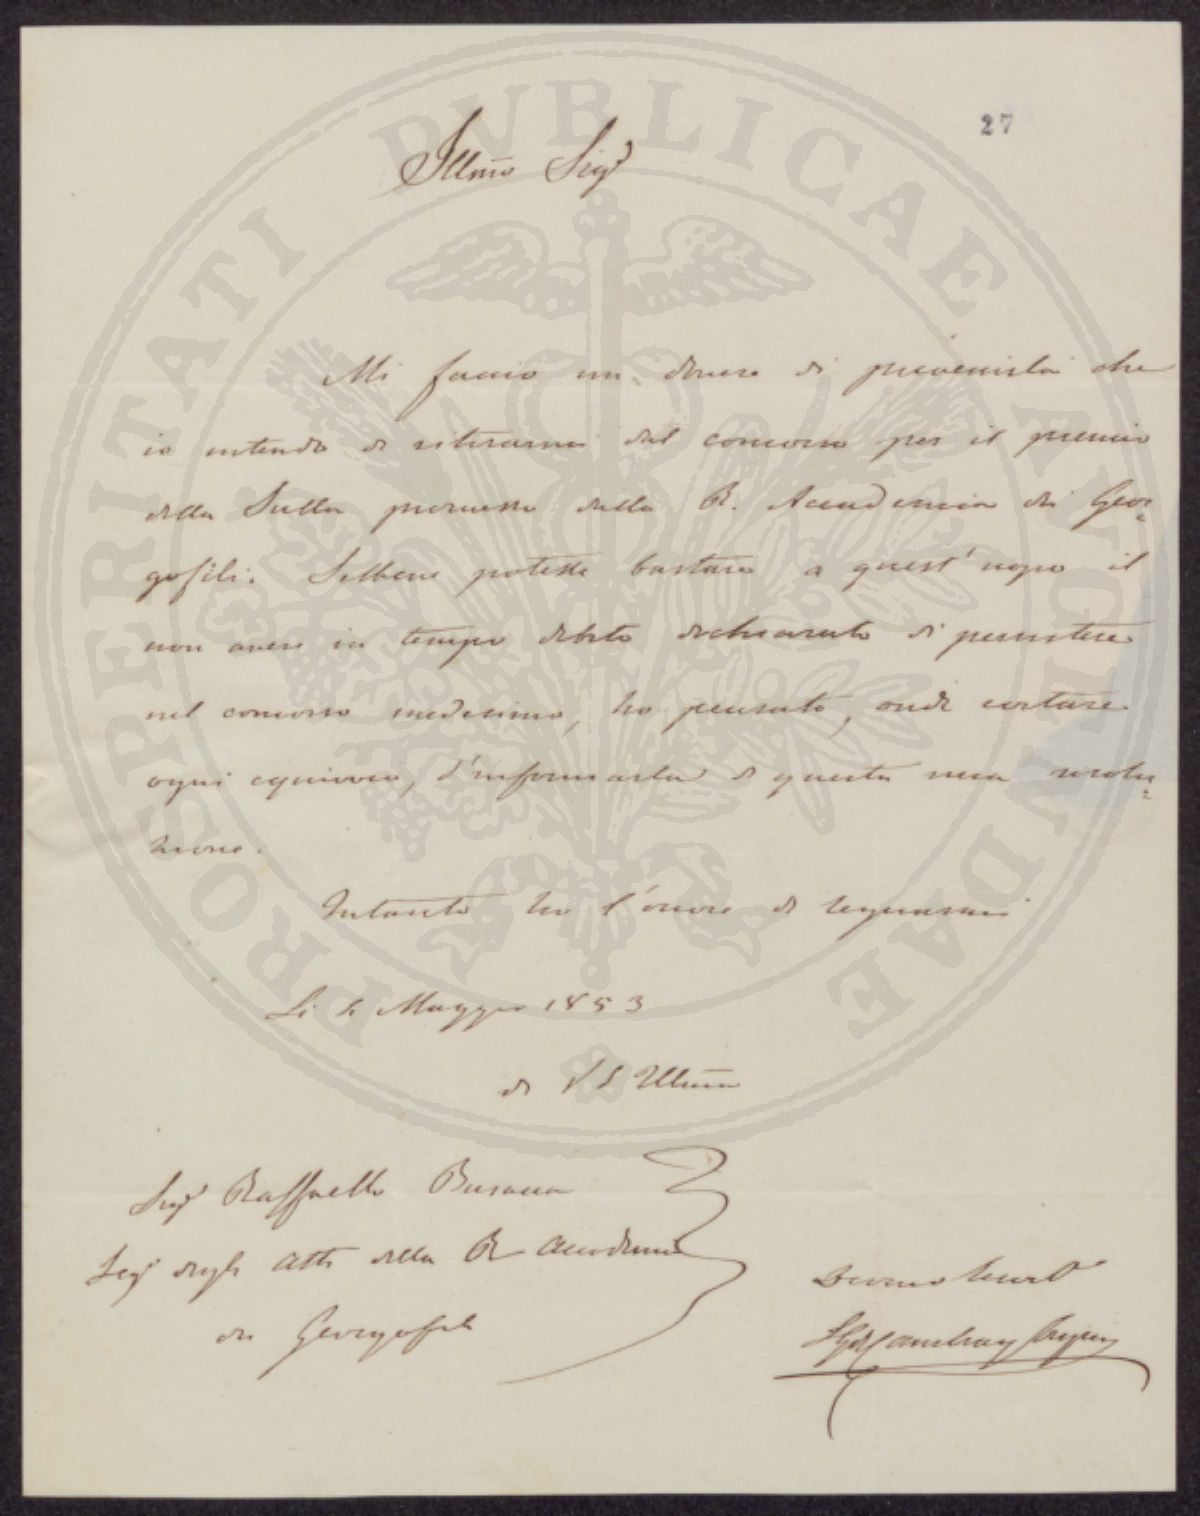 27
Illmo Sigr
Mi faccio un dovere di prevenirla che
io intendo di ritirarmi dal concorso per il premio
della Sulla promesso dalla R. Accademia dei Geor=
gofili. Sebbene potesse bastare a quest' uopo il
non avere in tempo debito dichiarato di persistere
nel concorso medesimo, ho pensato, onde evitare
ogni equivoco, d'informarla di questa mia risolu=
zione.
Intanto ho l'onore di segnarmi
Li Maggio 1853
di V S Illma
Sigr Raffaello Busacca
Segr degli Atti della R Accademia
dei Georgofili
Devmo Servo
L G de Cambray Digny
PROSPERITATI PVBLICAE AVGENDAE